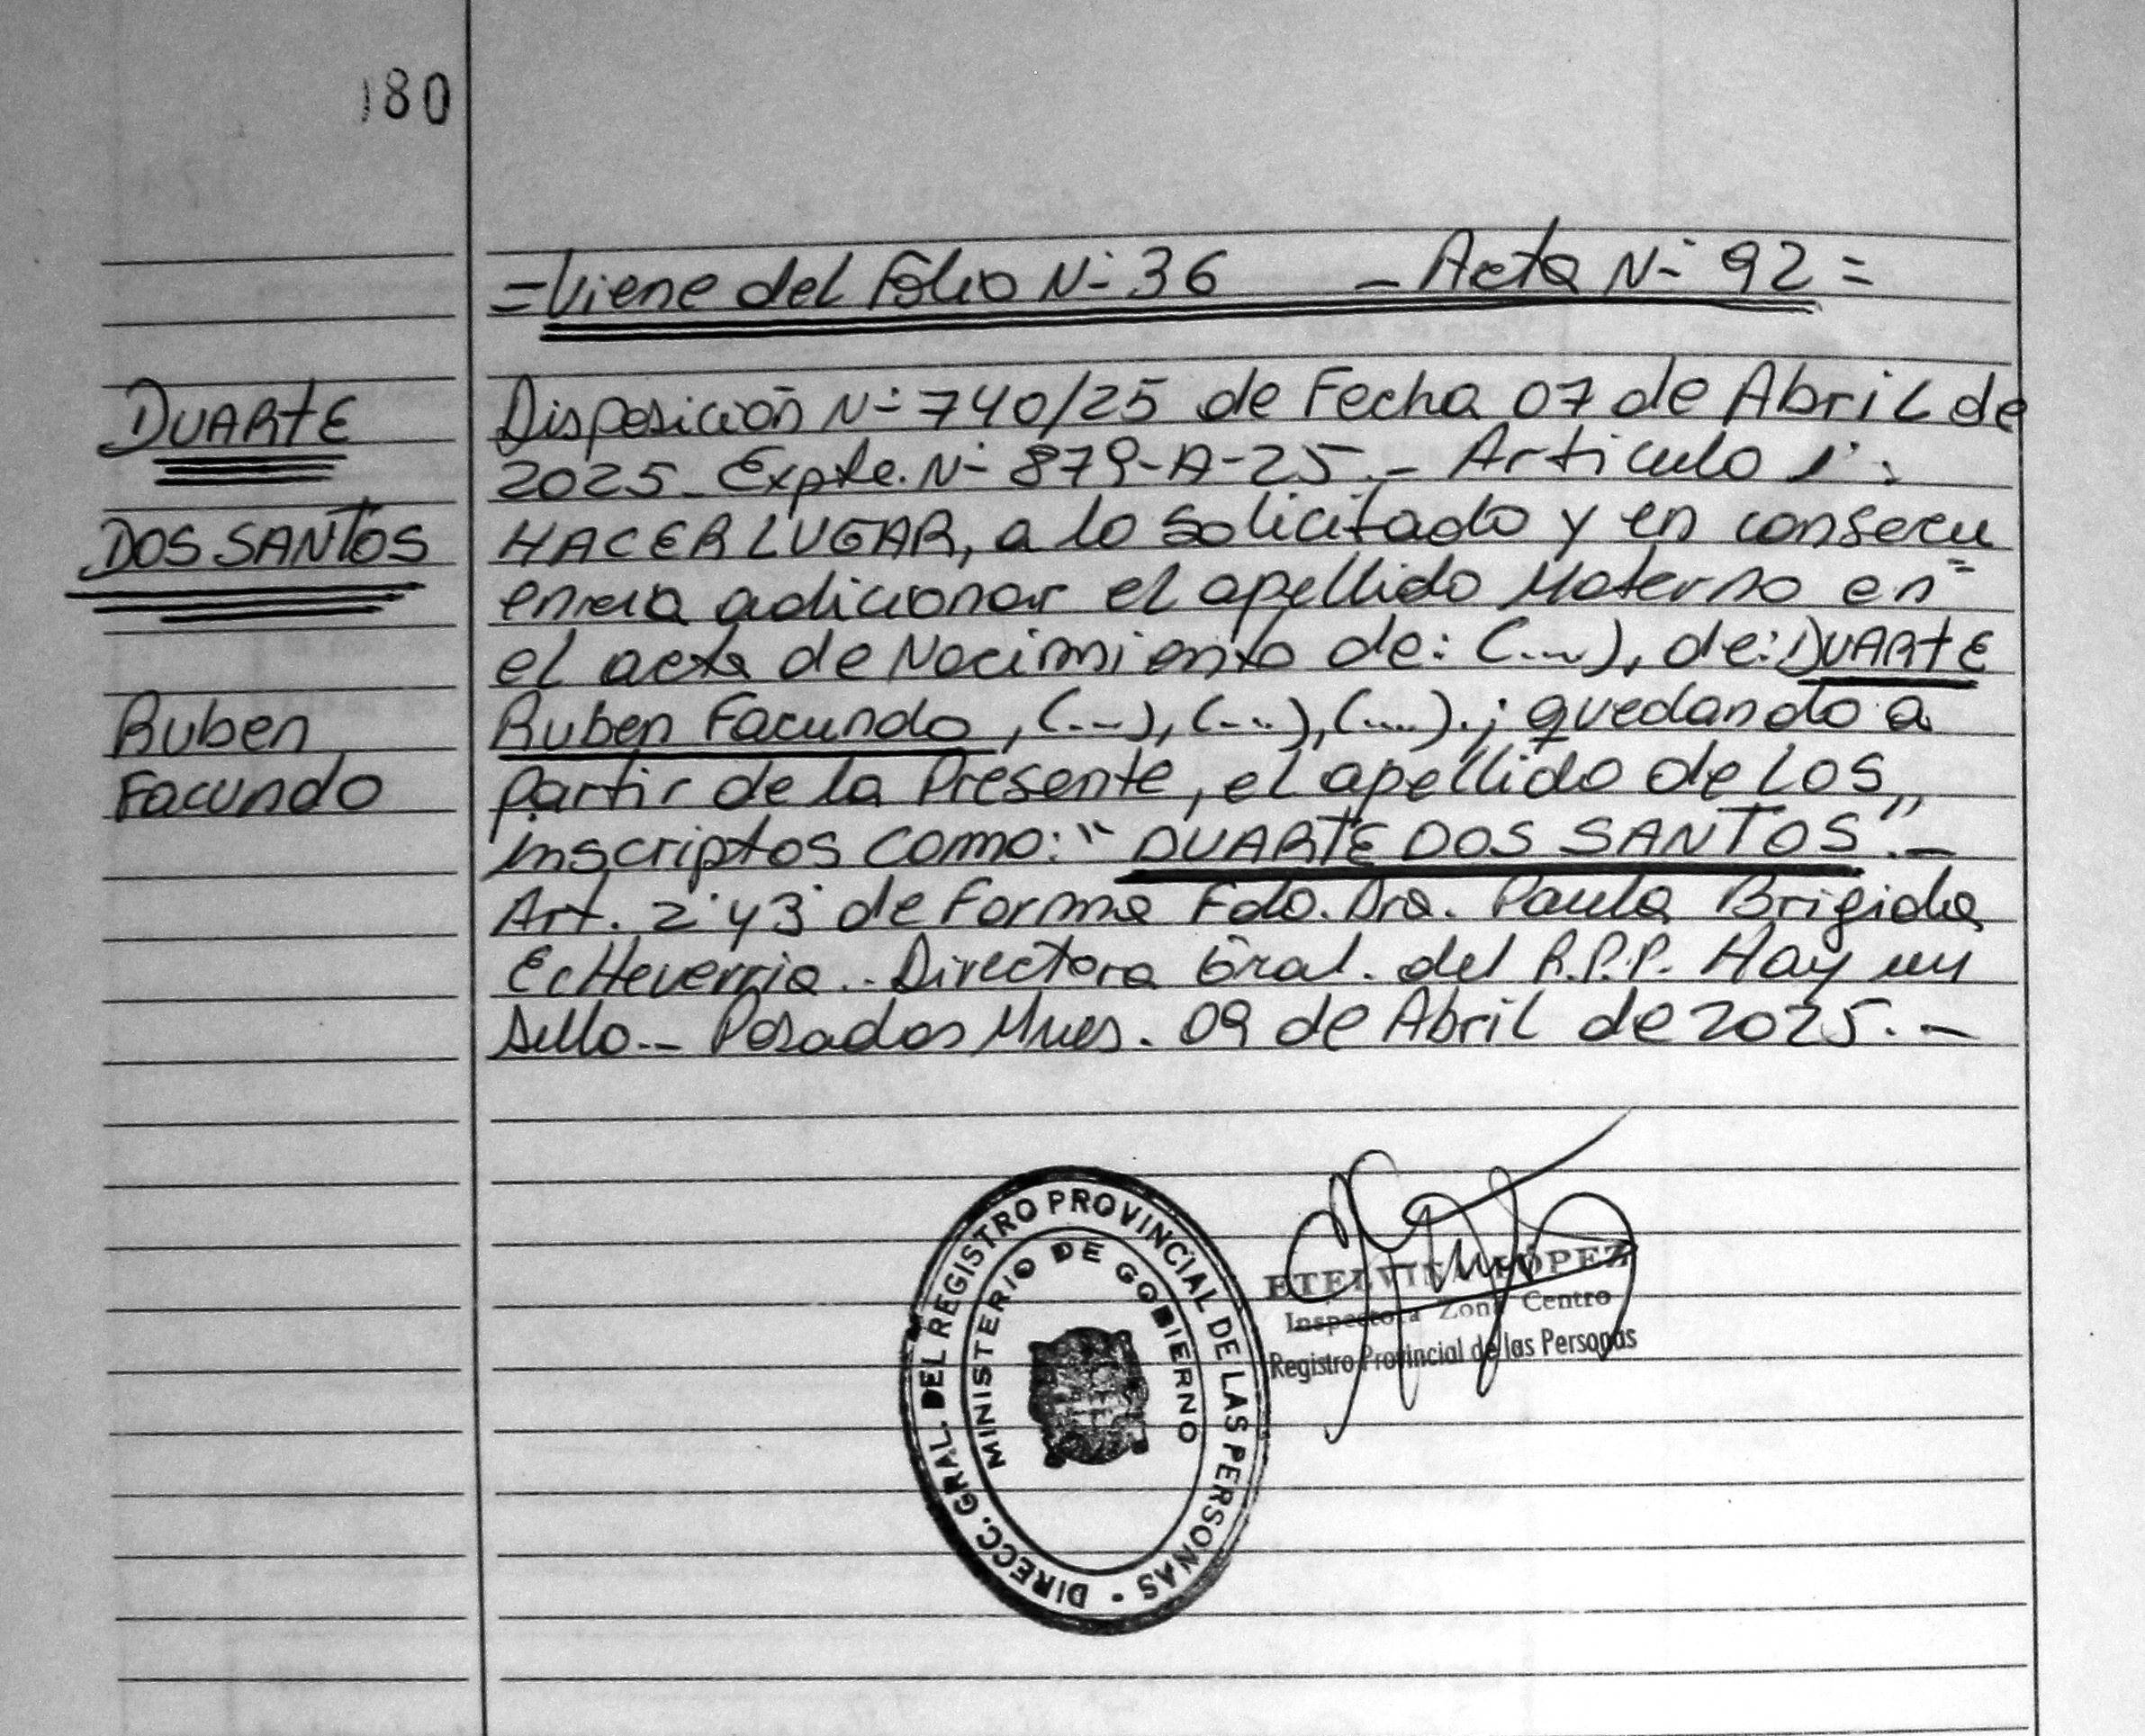 180
=Viene del Folio N- 36 - Acta N- 92 =
DUARTE
DOS SANTOS
Ruben
Facundo
Disposición N- 740/25 de Fecha 07 de Abril de
2025. Expte. N- 879-A-25.- Articulo 1°:
HACER LUGAR, a lo solicitado y en consecu
encia adicionar el apellido Materno en
el acta de Nacimiento de: (...), de: DUARTE
Ruben Facundo, (...), (...), (....).; quedando a
partir de la Presente, el apellido de Los
inscriptos como: "DUARTE DOS SANTOS".-
Art. 2° y 3° de Forma Fdo. Dra. Paula Brigida
EcHeverria.. Directora Gral. del R.P.P. Hay un
sello.- Posadas Mnes. 09 de Abril de 2025.-
DIRECC. GRAL. DEL REGISTRO PROVINCIAL DE LAS PERSONAS -
MINISTERIO DE GOBIERNO
ETELVINA LÓPEZ
Inspectora Zona Centro
Registro Provincial de las Personas